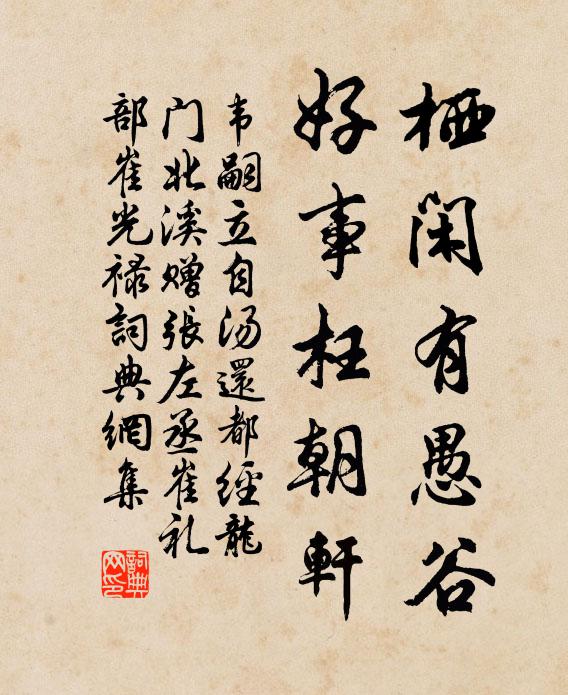 栖闲有愚谷
好事枉朝軒
韦嗣立自汤還都經龍
门北溪赠張左丞崔礼
部崔光禄詞典網集
詞典網印